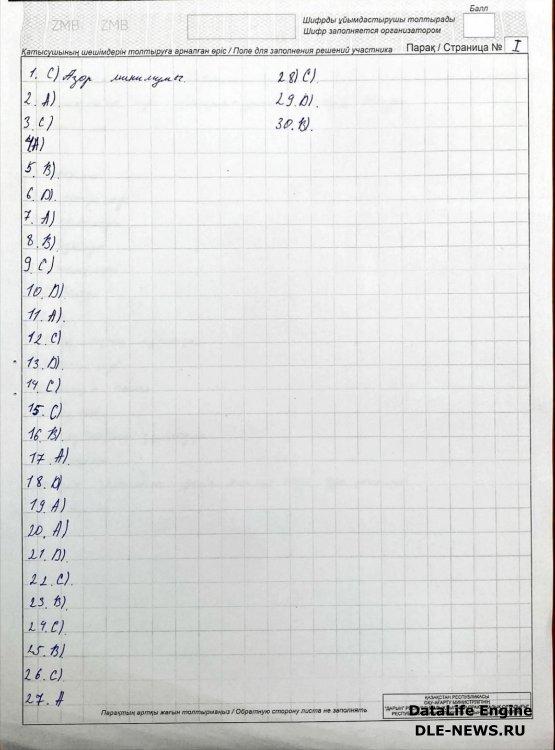 Балл
ZMB ZMB
Шифрды ұйымдастырушы толтырады
Шифр заполняется организатором
Қатысушының шешімдерін толтыруға арналған өріс / Поле для заполнения решений участника
Парақ / Страница № I
1. С) Азор минимумы.
2. А).
3. С)
4(А)
5. В)
6. D).
7. А)
8. В)
9. С)
10. D)
11. А).
12. С)
13. D).
14. С)
15. С)
16. В).
17. А).
18. D)
19. А)
20. А)
21. D)
22. С).
23. В).
24. С).
25. В)
26. С)
27. А
28) С).
29. D).
30. В).
Парақтың артқы жағын толтырмаңыз / Обратную сторону листа не заполнять
ҚАЗАҚСТАН РЕСПУБЛИКАСЫ
ОҚУ-АҒАРТУ МИНИСТРЛІГІНІҢ
DataLife Engine
DLE-NEWS.RU